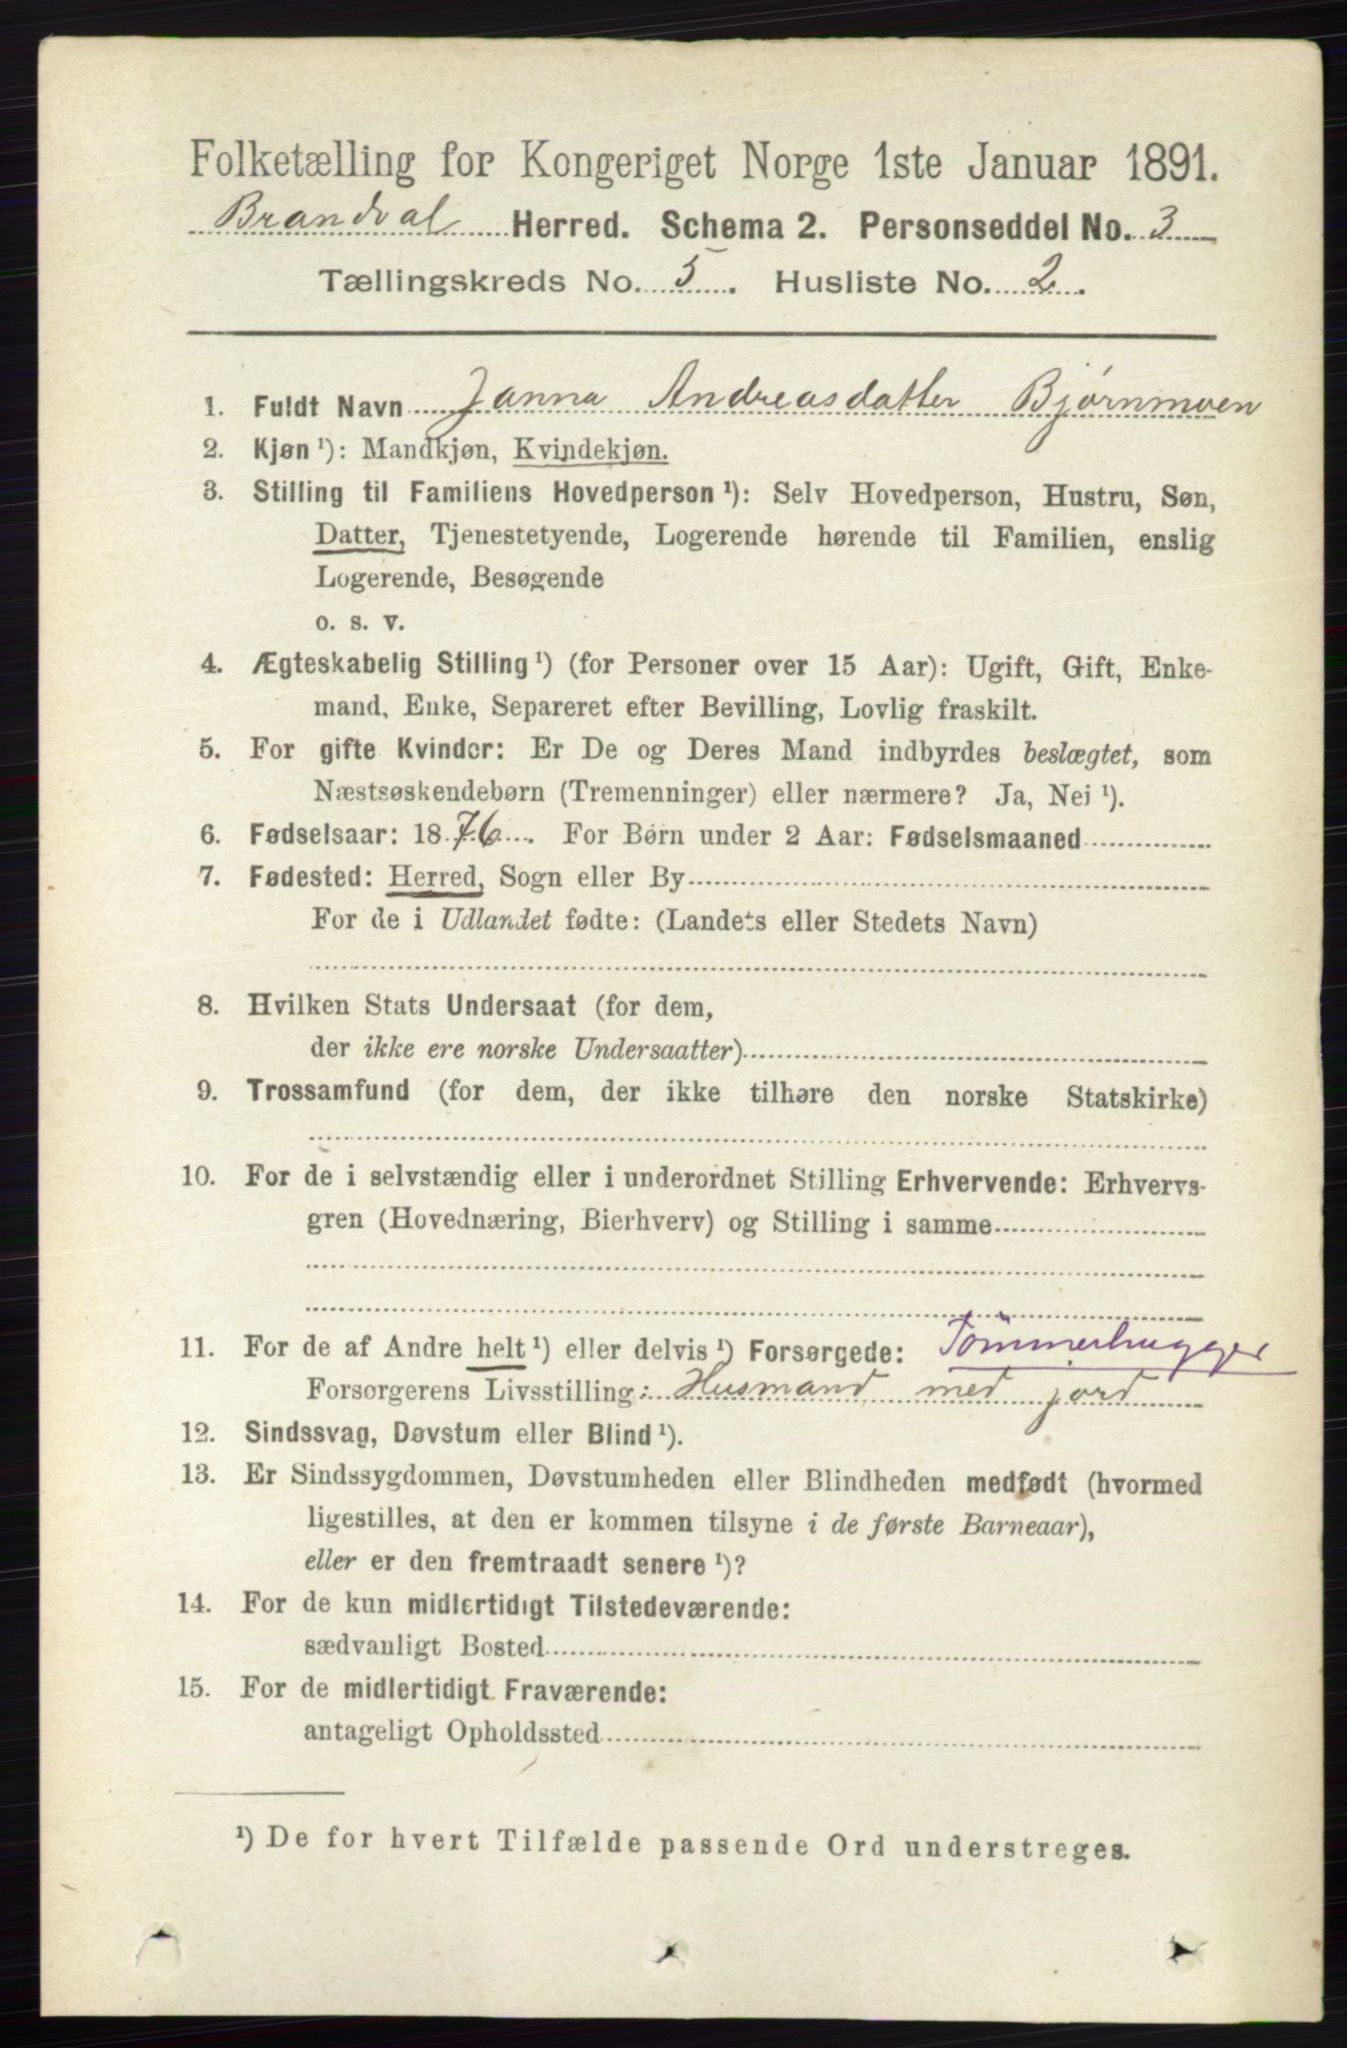 Folketælling for Kongeriget Norge 1ste Januar 1891.
Brandval Herred. Schema 2. Personseddel No. 3
Tællingskreds No. 5. Husliste No. 2.
1. Fuldt Navn Janna Andreasdatter Bjørnmoen
2. Kjøn ¹): Mandkjøn, Kvindekjøn.
3. Stilling til Familiens Hovedperson ¹): Selv Hovedperson, Hustru, Søn,
Datter, Tjenestetyende, Logerende hørende til Familien, enslig
Logerende, Besøgende
o. s. v.
4. Ægteskabelig Stilling ¹) (for Personer over 15 Aar): Ugift, Gift, Enke-
mand, Enke, Separeret efter Bevilling, Lovlig fraskilt.
5. For gifte Kvinder: Er De og Deres Mand indbyrdes beslægtet, som
Næstsøskendebørn (Tremenninger) eller nærmere? Ja, Nei ¹).
6. Fødselsaar: 1876. For Børn under 2 Aar: Fødselsmaaned
7. Fødested: Herred, Sogn eller By
For de i Udlandet fødte: (Landets eller Stedets Navn)
8. Hvilken Stats Undersaat (for dem,
der ikke ere norske Undersaatter)
9. Trossamfund (for dem, der ikke tilhøre den norske Statskirke)
10. For de i selvstændig eller i underordnet Stilling Erhvervende: Erhvervs-
gren (Hovednæring, Bierhverv) og Stilling i samme
11. For de af Andre helt ¹) eller delvis ¹) Forsørgede: Tömmerhugger
Forsørgerens Livsstilling: Husmand med jord
12. Sindssvag, Døvstum eller Blind ¹).
13. Er Sindssygdommen, Døvstumheden eller Blindheden medfødt (hvormed
ligestilles, at den er kommen tilsyne i de første Barneaar),
eller er den fremtraadt senere ¹)?
14. For de kun midlertidigt Tilstedeværende:
sædvanligt Bosted
15. For de midlertidigt Fraværende:
antageligt Opholdssted
¹) De for hvert Tilfælde passende Ord understreges.